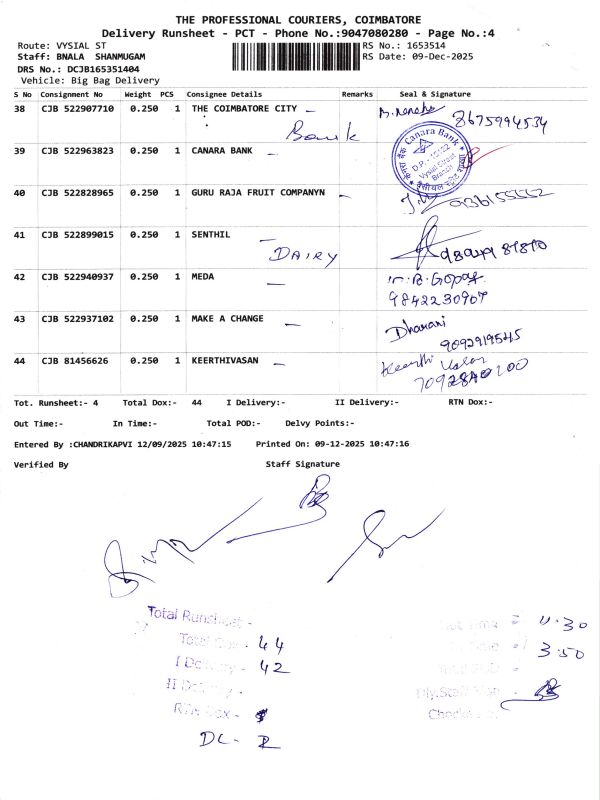 THE PROFESSIONAL COURIERS, COIMBATORE
Delivery Runsheet - PCT - Phone No.:9047080280 - Page No.:4
Route: VYSIAL ST
RS No.: 1653514
Staff: BNALA SHANMUGAM
RS Date: 09-Dec-2025
DRS No.: DCJB165351404
Vehicle: Big Bag Delivery
S No Consignment No Weight PCS Consignee Details Remarks Seal & Signature
38 CJB 522907710 0.250 1 THE COIMBATORE CITY –
Bank
8675994534
39 CJB 522963823 0.250 1 CANARA BANK –
Canara Bank
D.P.
Vysial Street
Branch
40 CJB 522828965 0.250 1 GURU RAJA FRUIT COMPANYN –
41 CJB 522899015 0.250 1 SENTHIL –
DAIRY
42 CJB 522940937 0.250 1 MEDA –
m.B.Gopal
9842230907
43 CJB 522937102 0.250 1 MAKE A CHANGE –
Dharani
9092919545
44 CJB 81456626 0.250 1 KEERTHIVASAN –
Keerthi Vasan
Tot. Runsheet:- 4 Total Dox:- 44 I Delivery:- II Delivery:- RTN Dox:-
Out Time:- In Time:- Total POD:- Delvy Points:-
Entered By :CHANDRIKAPVI 12/09/2025 10:47:15 Printed On: 09-12-2025 10:47:16
Verified By Staff Signature
Total Runsheet -
Total Dox - 44
I Delivery - 42
II Delivery -
RTN Dox -
DL - 2
Out Time = 11.30
In Time = 3.50
Total POD -
Dly.Staff Sign -